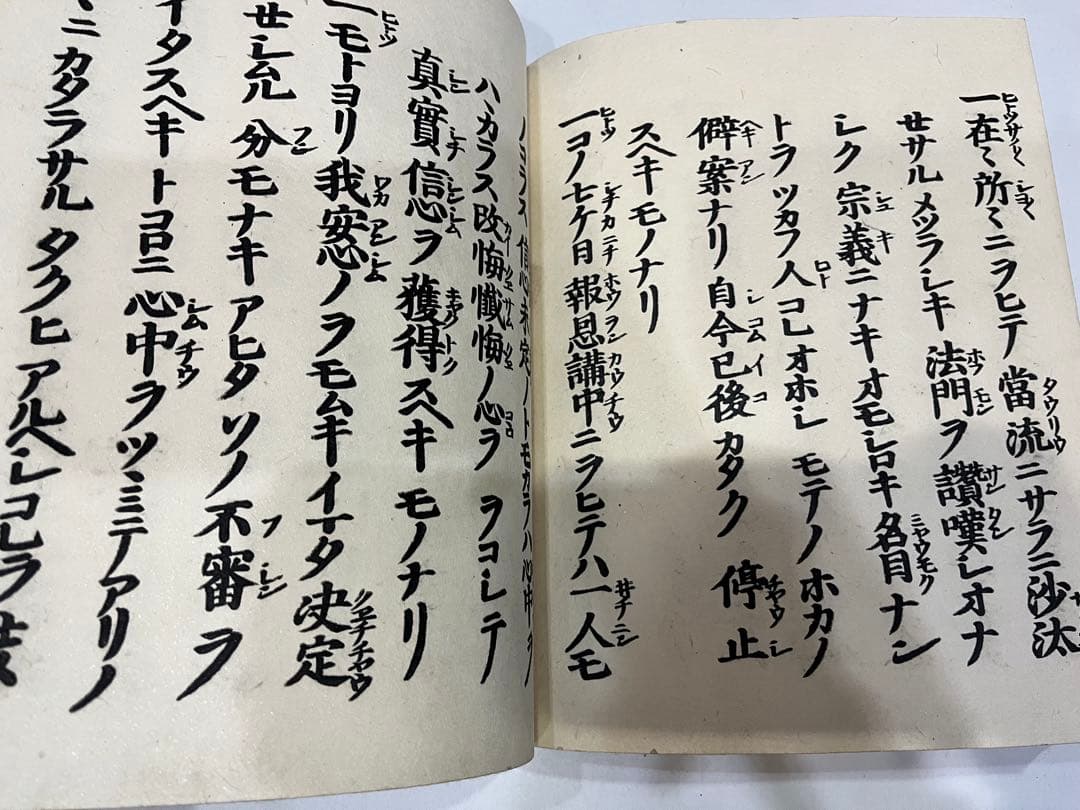 一在〻所〻ニヲヒテ當流ニサラニ沙汰
セサルメツラシキ法門ヲ讃嘆シオナ
シク宗義ニナキオモシロキ名目ナン
トヲツカフ人コレオホシモテノホカノ
僻案ナリ自今已後カタク停止
スヘキモノナリ
一コノ七ケ日報恩講中ニヲヒテハ一人モ
ノコラス信心未定ノトモカラハ心中ヲ
ハヽカラス改悔懺悔ノ心ヲヲコシテ
真實信心ヲ獲得スヘキモノナリ
一モトヨリ我安心ノヲモムキイマタ决定
セシムル分モナキアヒタソノ不審ヲ
イタスヘキトコロニ心中ヲツヽミテアリノ
ニカタラサルタクヒアルヘシコレヲセ